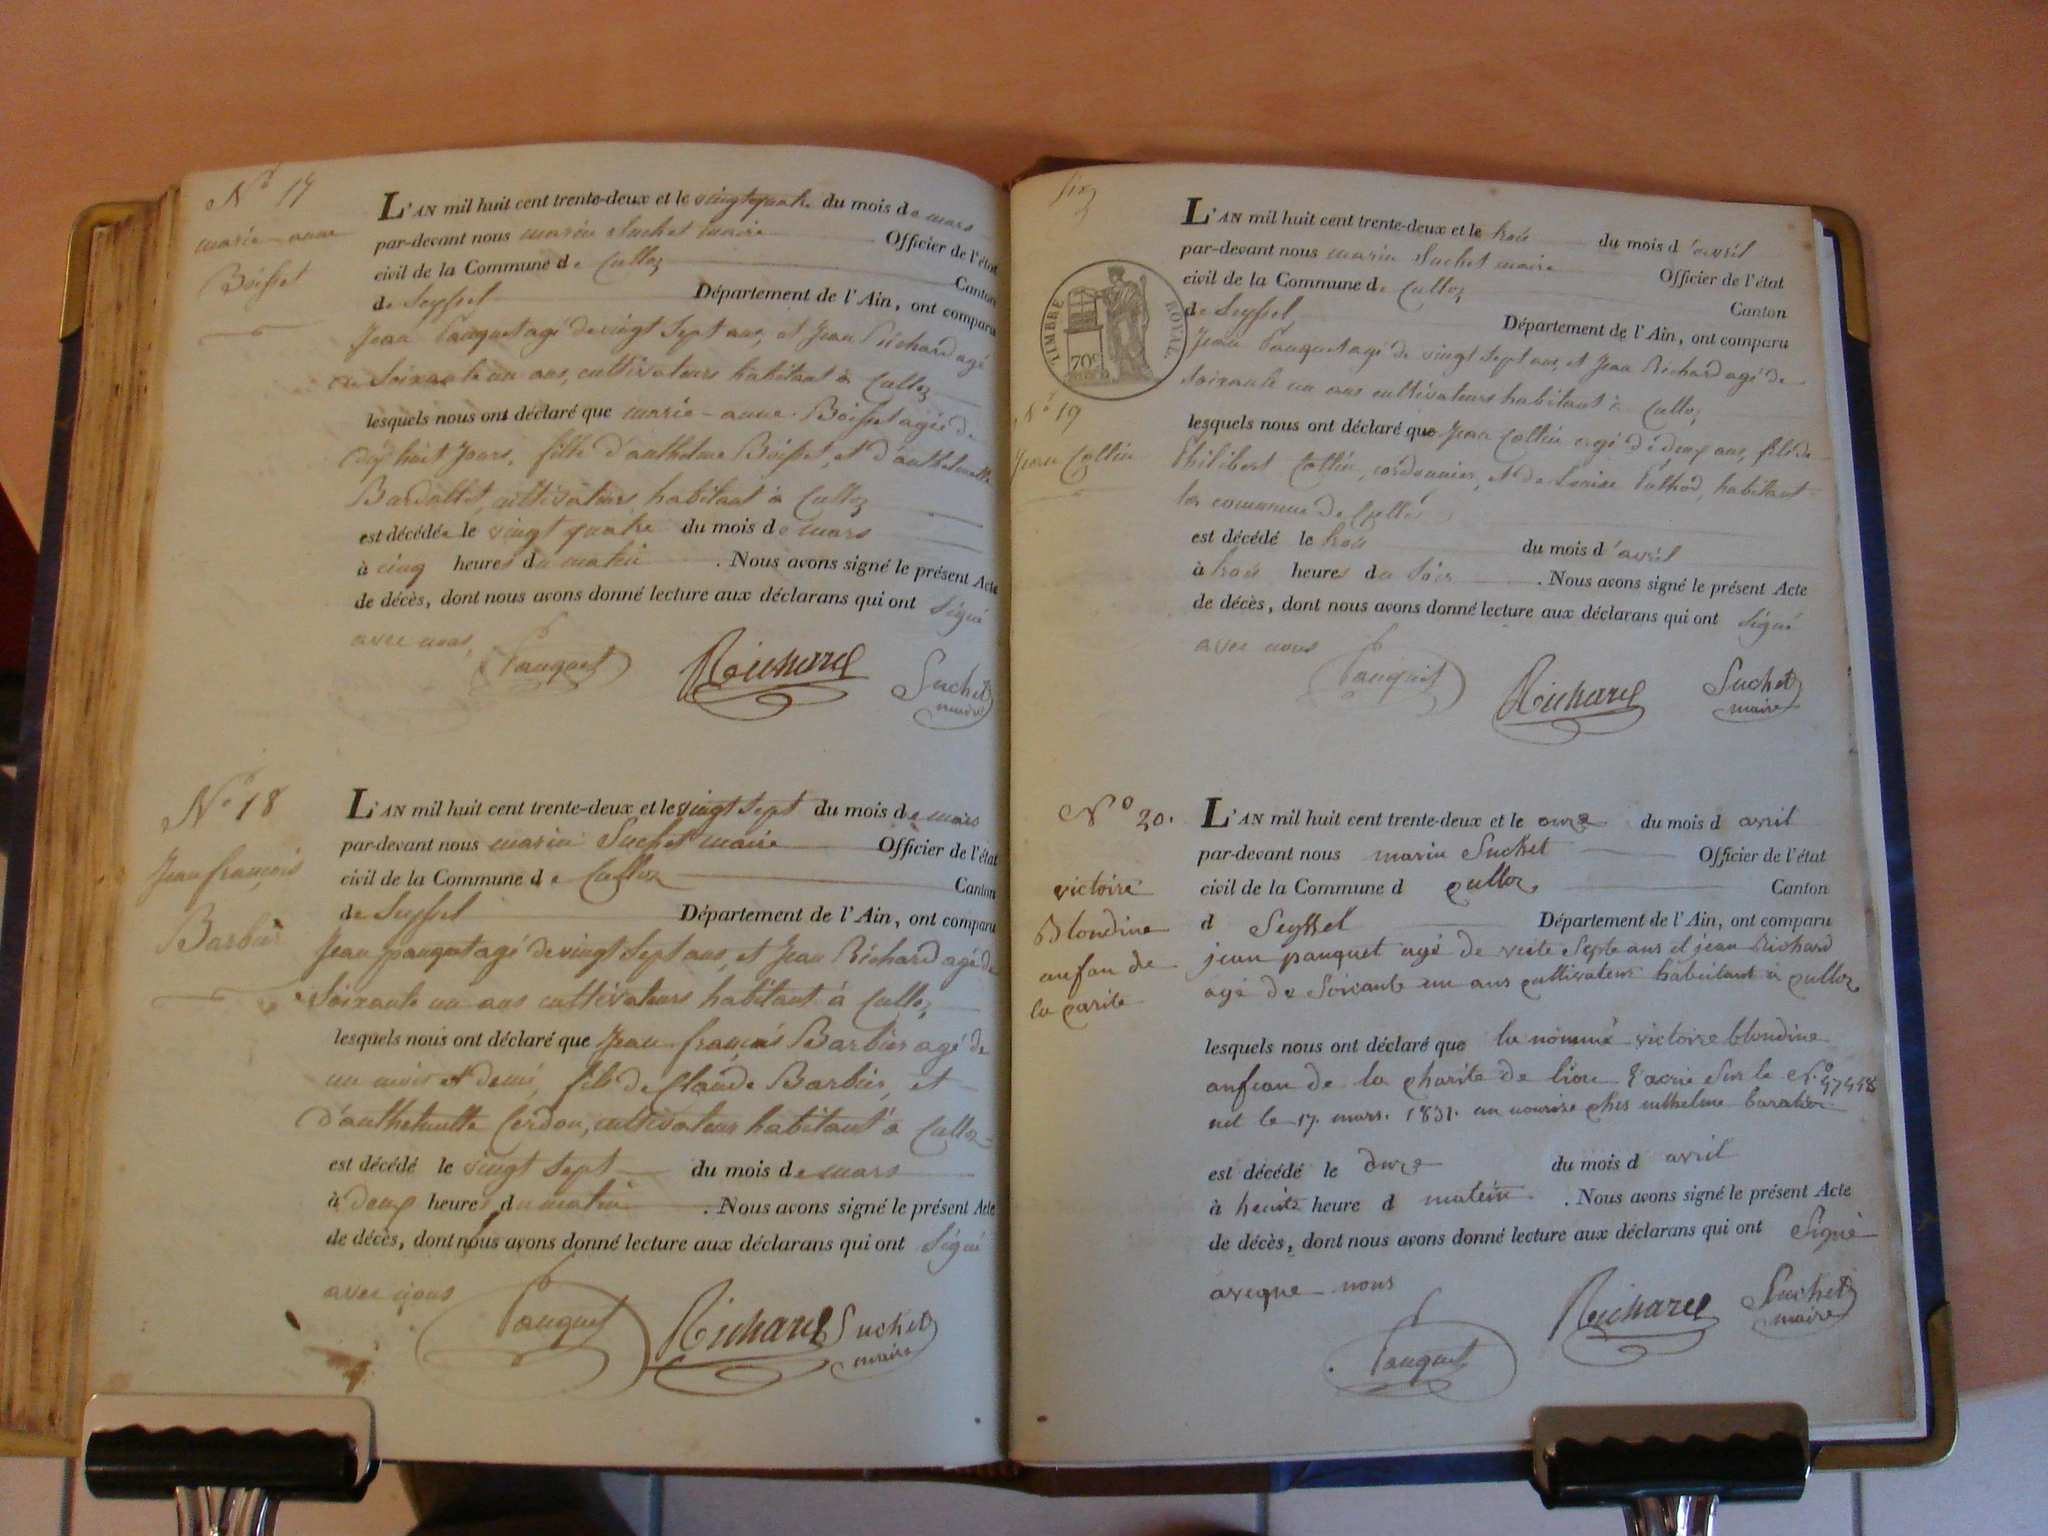 N.o 17
marie-anne
Boisset
L'AN mil huit cent trente-deux et le vingt quatre du mois de mars
par-devant nous marin Suchet maire Officier de l'état
civil de la Commune de Culloz Canton
de Seyssel Département de l'Ain, ont comparu
Jean Pauquet agé de vingt Sept ans, et Jean Richard agé
de Soixante un ans, cultivateurs habitant à Culloz
lesquels nous ont déclaré que marie-anne Boisset agée de
dix huit Jours, fille d'anthelme Boisset, et d'anthelmette
Bardallet, cultivateurs habitant à Culloz
est décédée le vingt quatre du mois de mars
à cinq heures du matin . Nous avons signé le présent Acte
de décès, dont nous avons donné lecture aux déclarans qui ont Signé
avec nous,
Pauquet Richard Suchet
maire
N.o 18
Jean françois
Barbier
L'AN mil huit cent trente-deux et le vingt Sept du mois de mars
par-devant nous marin Suchet maire Officier de l'état
civil de la Commune de Culloz Canton
de Seyssel Département de l'Ain, ont comparu
Jean pauquet agé de vingt Sept ans, et Jean Richard agé de
Soixante un ans cultivateurs habitant à Culloz
lesquels nous ont déclaré que Jean françois Barbier agé de
un mois et demi, fils de Claude Barbier, et
d'anthelmette Cerdon, cultivateurs habitant à Culloz
est décédé le vingt Sept du mois de mars
à deux heures du matin . Nous avons signé le présent Acte
de décès, dont nous avons donné lecture aux déclarans qui ont Signé
avec nous
Pauquet Richard Suchet
maire
Six
TIMBRE ROYAL
70c
N.o 19
Jean Collin
L'AN mil huit cent trente-deux et le trois du mois d'avril
par-devant nous marin Suchet maire Officier de l'état
civil de la Commune de Culloz Canton
de Seyssel Département de l'Ain, ont comparu
Jean Pauquet agé de vingt Sept ans, et Jean Richard agé de
Soixante un ans cultivateurs habitant à Culloz
lesquels nous ont déclaré que Jean Collin agé de deux ans, fils de
Philibert Collin, cordonnier, et de Louise habitant
la commune de
est décédé le trois du mois d'avril
à trois heures du Soir . Nous avons signé le présent Acte
de décès, dont nous avons donné lecture aux déclarans qui ont Signé
avec nous
Pauquet Richard Suchet
maire
N.o 20.
victoire
Blondine
anfan de
la carite
L'AN mil huit cent trente-deux et le onze du mois d avril
par-devant nous marin Suchet Officier de l'état
civil de la Commune d culloz Canton
d Seyssel Département de l'Ain, ont comparu
jean pauquet agé de veite Septe ans et jean Richard
agé de Soixante un ans cultivateur habitant à culloz
lesquels nous ont déclaré que la nommé victoire blondine
anfean de la charite de lion Sur le N.o 57458
net le 17. mars. 1831. an nourise ches anthelme baratier
est décédé le onze du mois d avril
à heuite heure d matein . Nous avons signé le présent Acte
de décès, dont nous avons donné lecture aux déclarans qui ont Signé
aveque nous
Pauquet Richard Suchet
maire